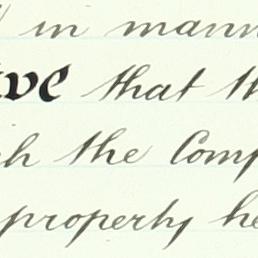 in mann
ve that th
ch the Comp
property he